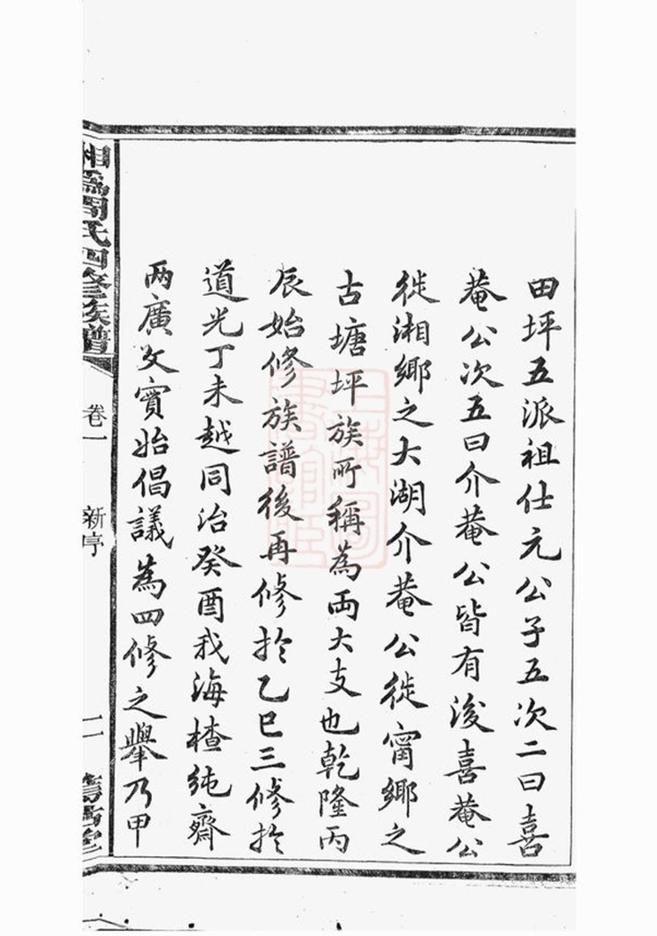 田坪五派祖仕元公子五次二曰喜
菴公次五曰介菴公皆有浚喜菴公
徙湘鄉之大湖介菴公徙甯鄉之
古塘坪族所稱為両大支也乾隆丙
辰始修族譜後再修於乙巳三修於
道光丁未越同治癸酉我海楂純齋
两廣文實始倡議為四修之舉乃甲
周氏四修族譜
卷一
新序
二